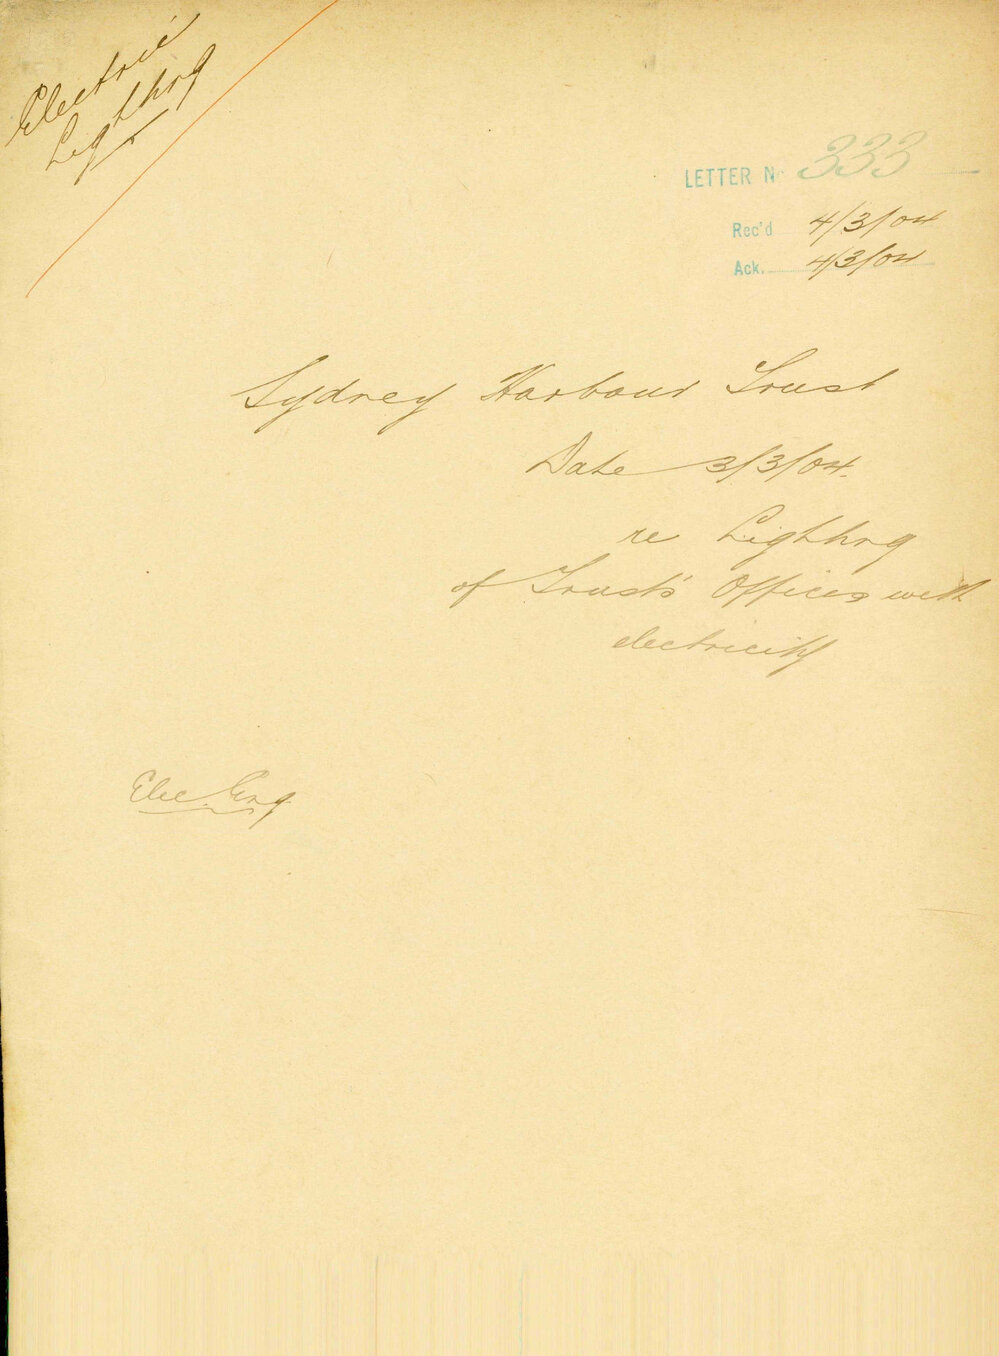 Electric
Lighting
LETTER No 333
Rec'd 4/3/04
Ack. 4/3/04
Sydney Harbour Trust
Date 3/3/04.
re Lighting
of Trust's Offices with
electricity
Elec. Eng